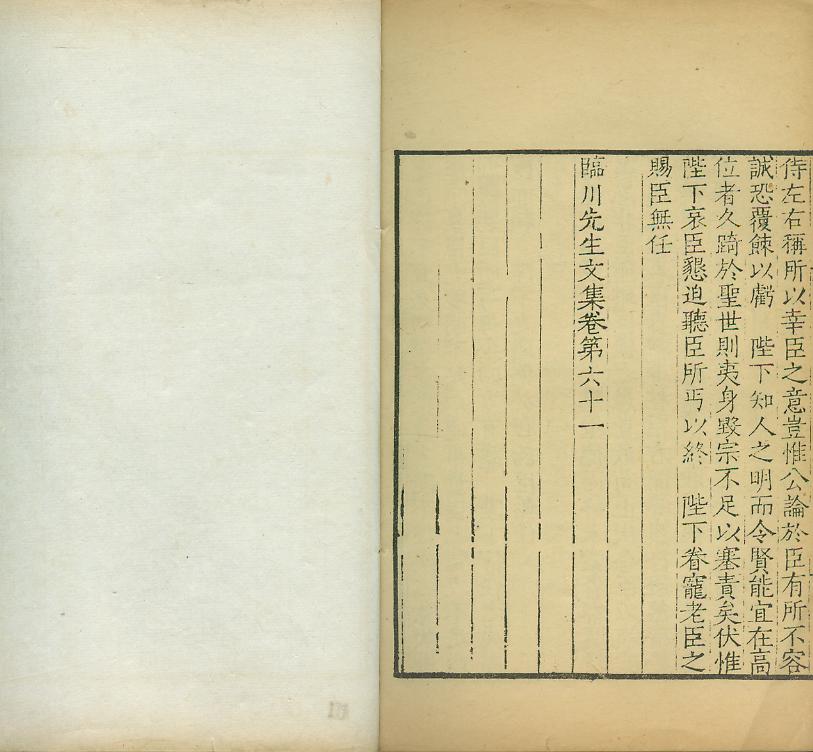 侍左右稱所以幸臣之意豈惟公論於臣有所不容
誠恐覆餗以虧　陛下知人之明而令賢能宜在高
位者久踦於聖世則夷身毀宗不足以塞責矣伏惟
陛下哀臣懇迫聽臣所丐以終　陛下眷寵老臣之
賜臣無任
臨川先生文集卷第六十一